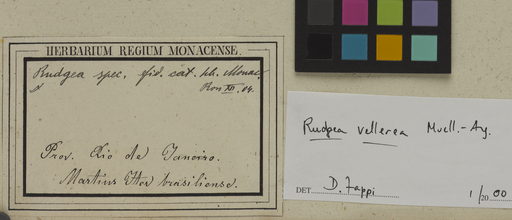 HERBARIUM REGIUM MONACENSE.
Rudgea spec. fid. cat. hb. Monac.
Ron XII. 04.
Prov. Rio de Janeiro.
Martius Iter brasiliense.
Rudgea vellerea Muell.-Ag.
DET. D. Zappi 1/2000